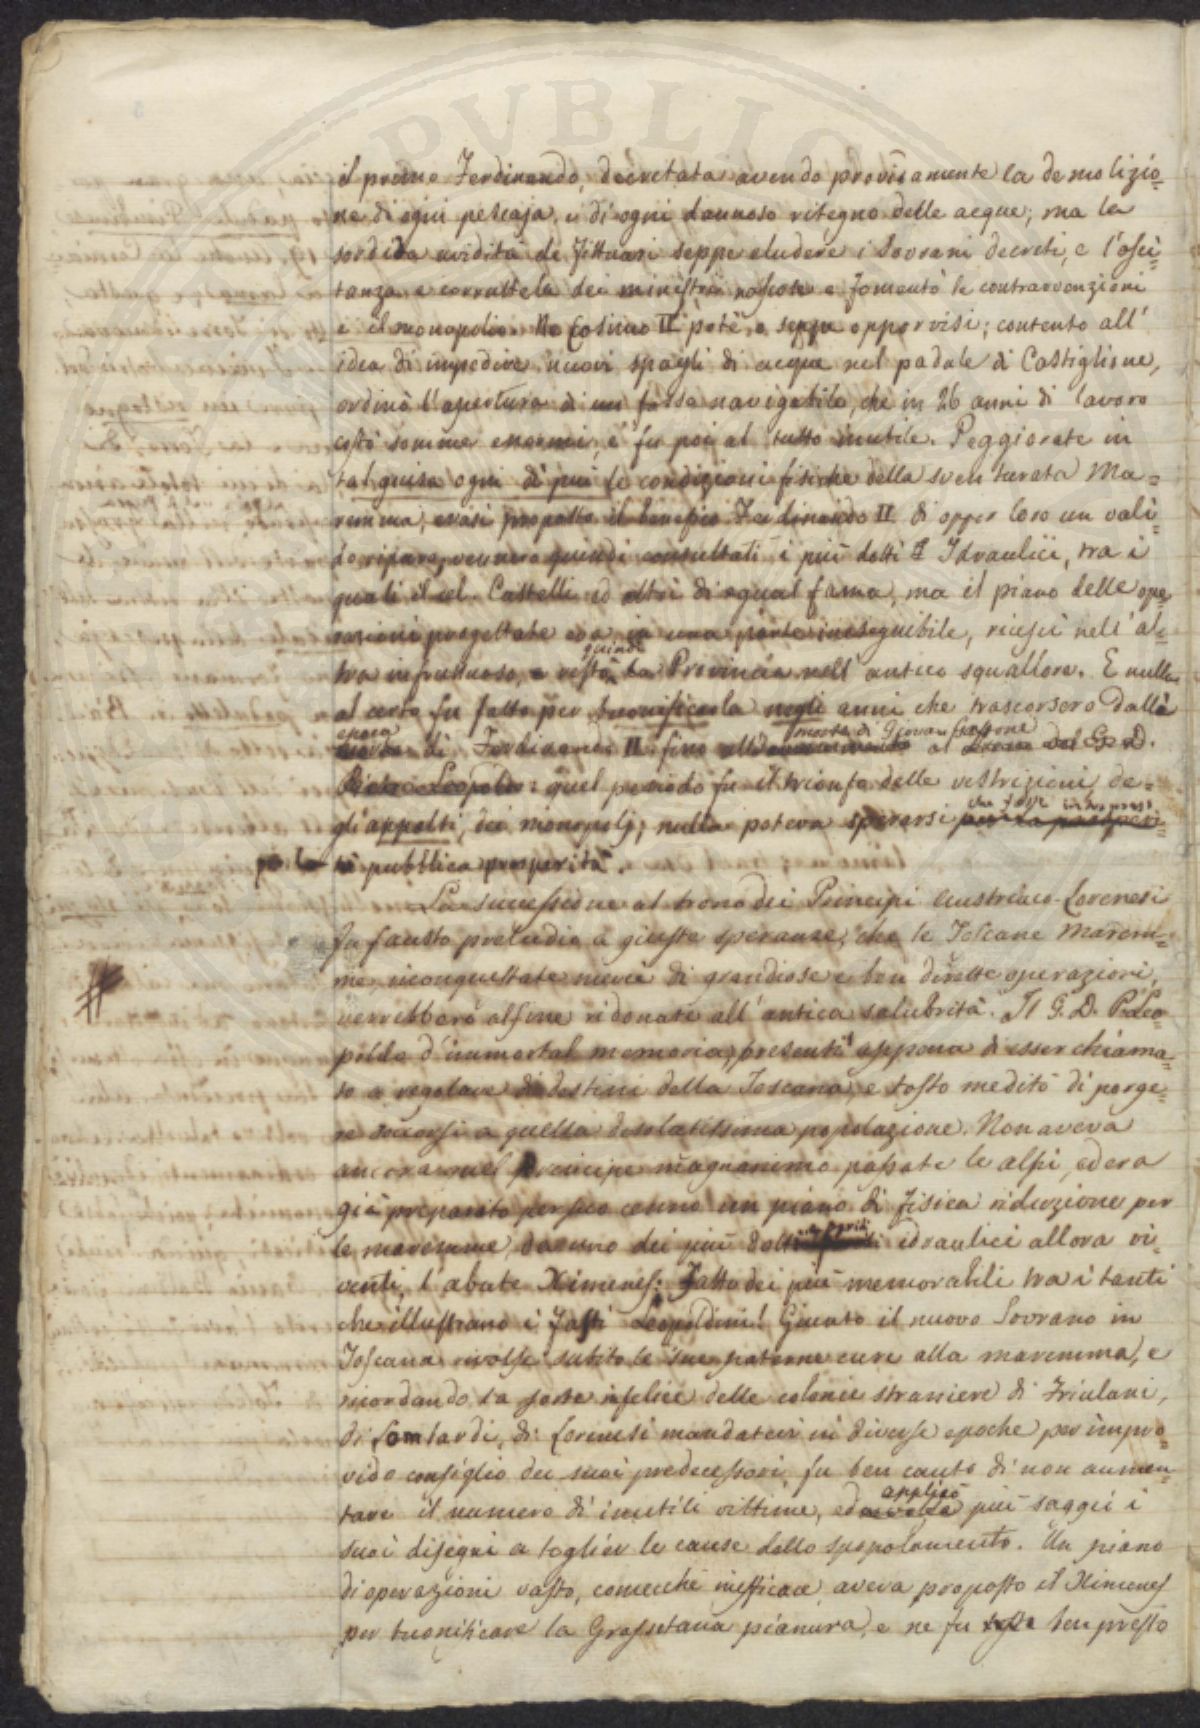 il primo Ferdinando, decretata avendo provisamente la demolizio=
ne di ogni pescaja, e di ogni dannoso ritegno delle acque; ma la
sordida avidità de Fittuari seppe eludere i Sovrani decreti, e l'osci=
tanza e corruttela dei ministri nascose e fomentò le contravvenzioni
e il monopolio. Ne Cosimo II potè, o seppe opporvisi; contento all'
idea di impedire nuovi spagli di acque nel padule di Castiglione,
ordinò l'apertura di un fosso navigabile, che in 26 anni di lavoro
costò somme enormi, e fu poi al tutto inutile. Peggiorate in
tal guisa ogni dì più le condizioni fisiche della sventurata Ma=
remma, erasi proposto il benefico Ferdinando II di opper loro un vali=
do riparo; vennero quindi consultati i più dotti Idraulici, tra i
quali il cel. Castelli ed altri di egual fama, ma il piano delle ope
razioni progettate era in una parte ineseguibile, riuscì nell'al=
tra infruttuoso, e restò quindi la Provincia nell'antico squallore. E nulla
al certo fu fatto per buonificarla negli anni che trascorsero dalla
epoca di Ferdinando II fino alla morte di Giovan Gastone al G. D.
Pietro Leopoldo: quel periodo fu il trionfo delle restrizioni de=
gli appalti, dei monopolj; nulla poteva sperarsi che fosse
per la pubblica prosperità.
La successione al trono dei Principi Austriaco-Lorenesi
fu fausto preludio a giuste speranze, che le Toscane Marem=
me, riconquistate mercè di grandiose e ben dirette operazioni,
verrebbero alfine ridonate all'antica salubrità. Il G. D. P. Leo
poldo d'immortal memoria, presentì appena di esser chiama=
to a regolare i destini della Toscana, e tosto meditò di porge=
re soccorsi a quella desolatissima popolazione. Non aveva
ancora quel Principe magnanimo passate le alpi, ed era
già preparato per suo cenno un piano di fisica riduzione per
le maremme da uno dei più dotti idraulici allora vi=
venti, l'abate Ximenes. Fatto dei più memorabili tra i tanti
che illustrano i Fasti Leopoldini! Giunto il nuovo Sovrano in
Toscana rivolse subito le sue paterne cure alla maremma, e
ricordando la sorte infelice delle colonie straniere di Friulani,
di Lombardi, di Lorenesi mandatevi in diverse epoche per impro=
vido consiglio dei suoi predecessori, fu ben cauto di non aumen=
tare il numero di inutili vittime, ed applicò più saggi i
suoi disegni a toglier le cause dello spopolamento. Un piano
di operazioni vasto, comecchè inefficace, aveva proposto il Ximenes
per buonificare la Grossetana pianura, e ne fu ben presto